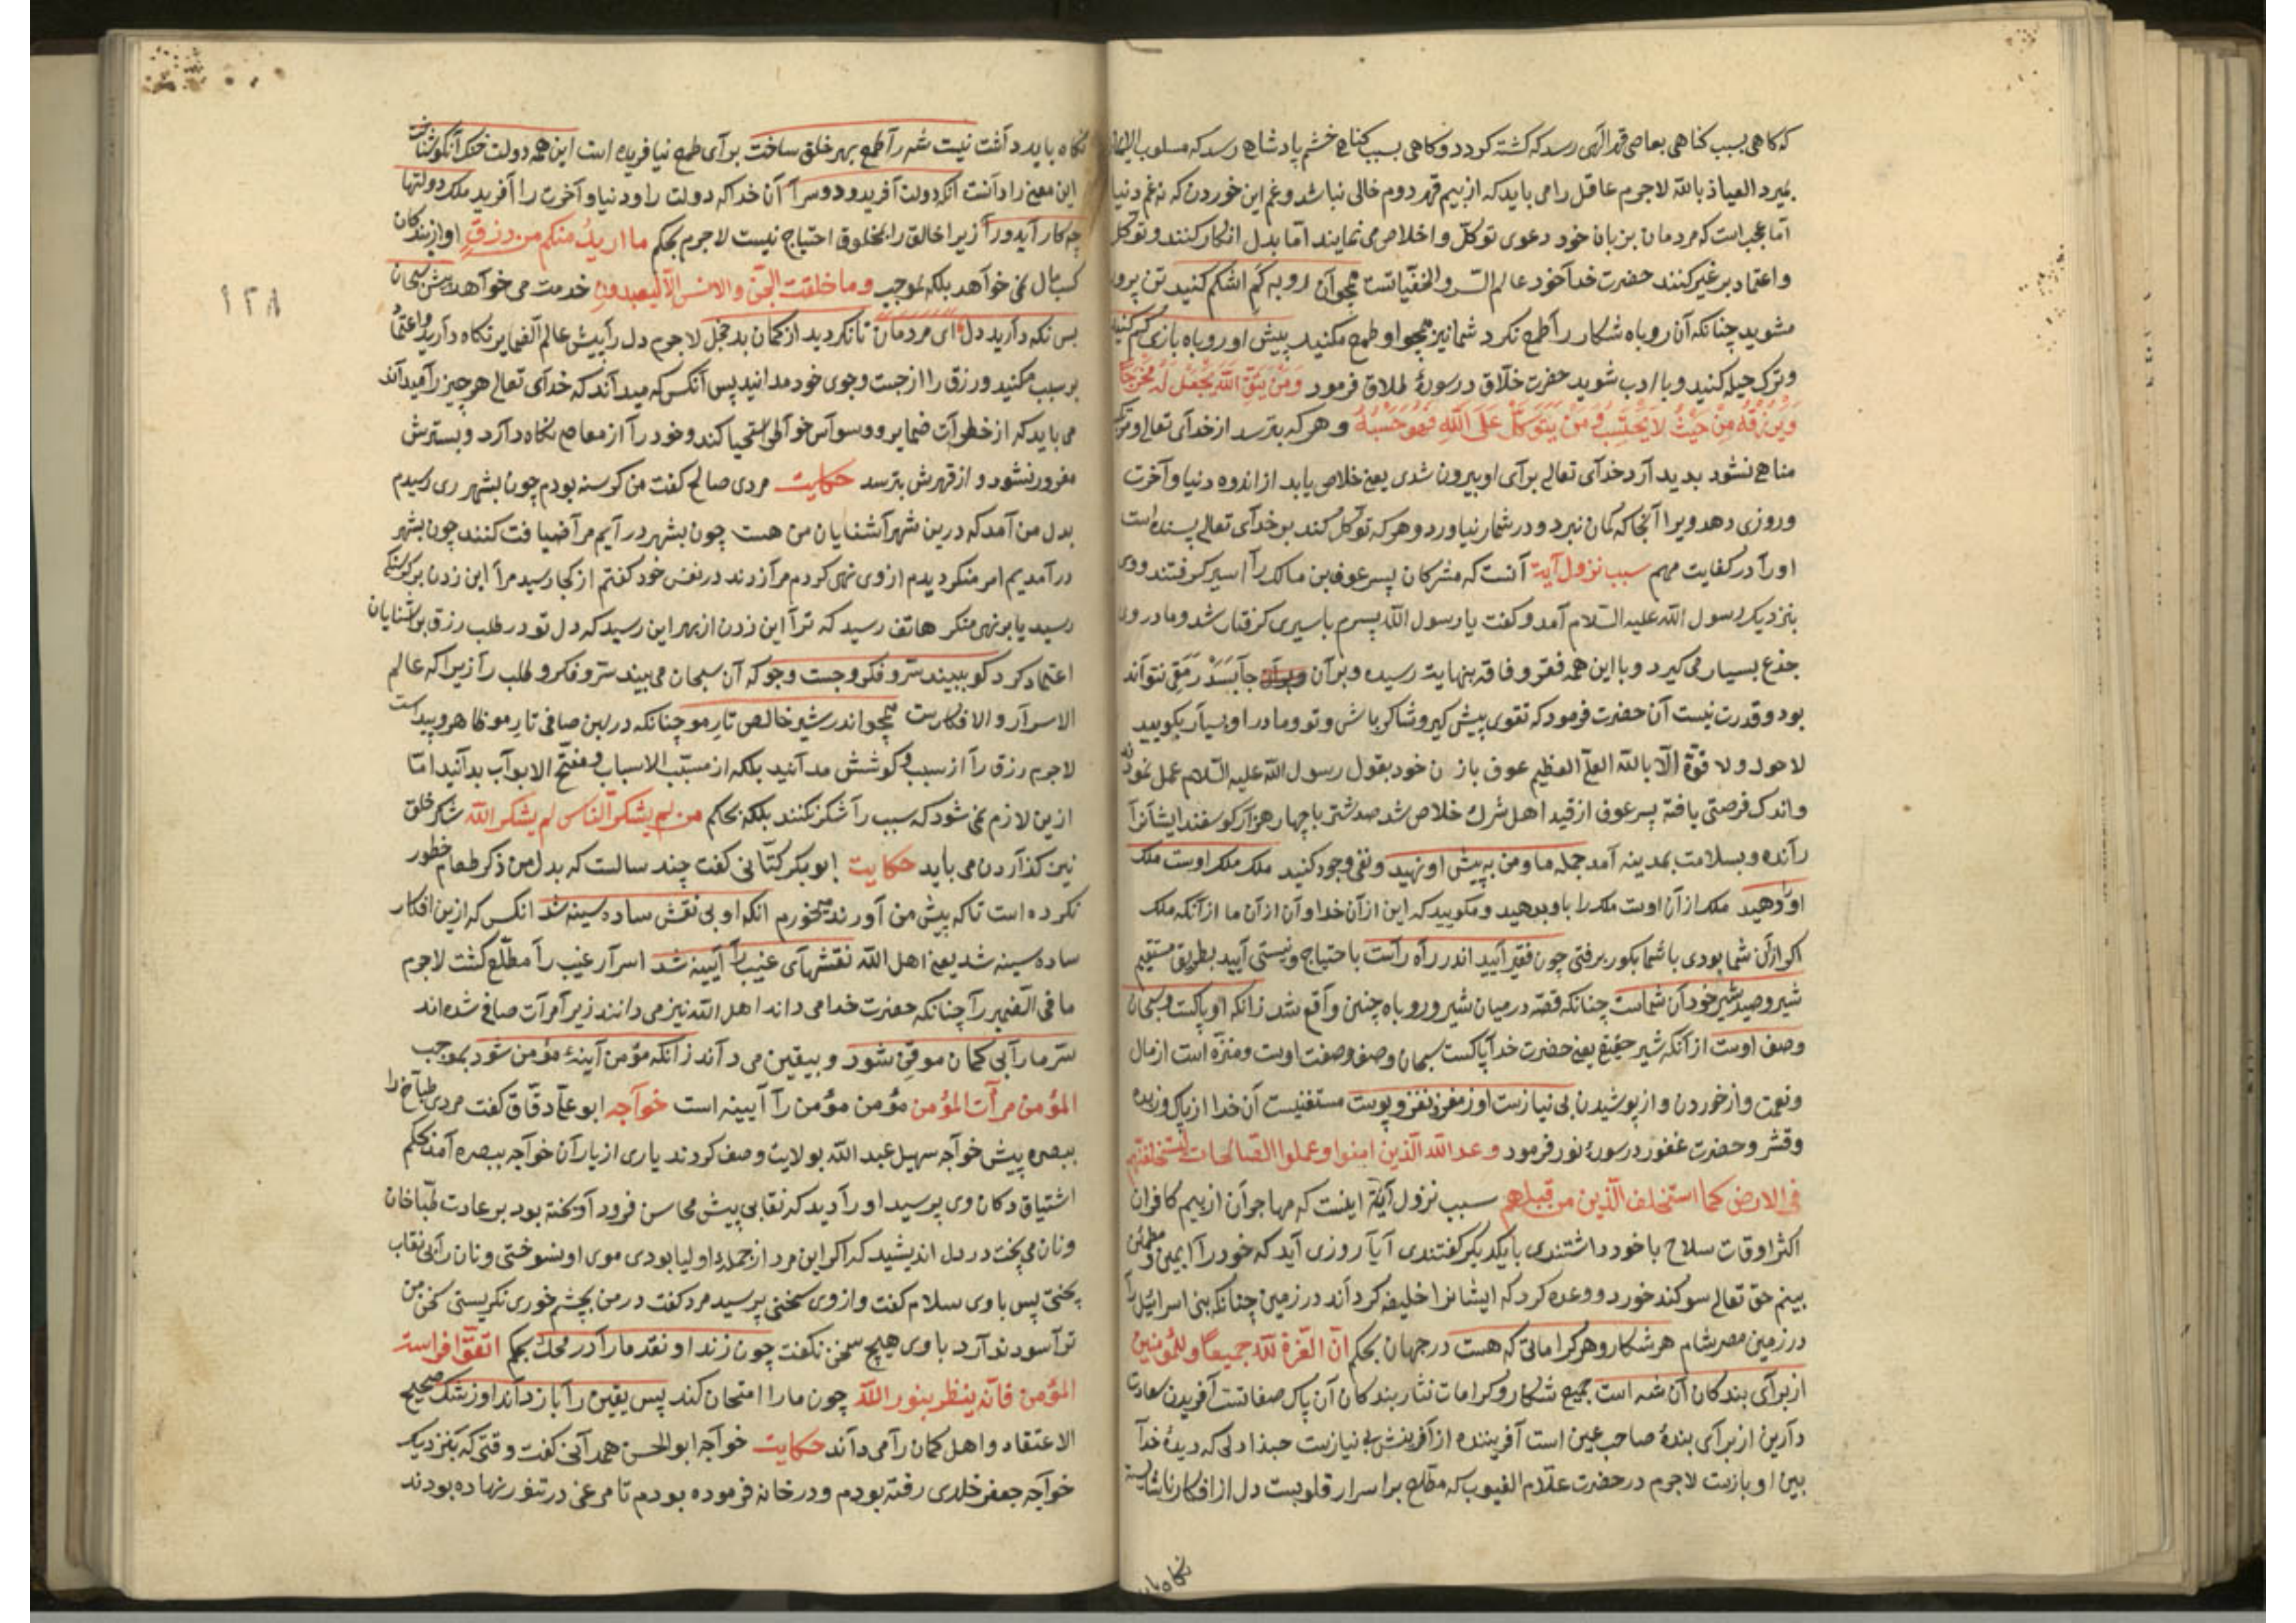 که کاهی بسبب کناهی بعاصی قهر الهی رسد که کشته کردد و کاهی بسبب کناهی خشم پادشاهی رسد که مسلوب الایمان
بمیرد العیاذ بالله لاجرم عاقل را می باید که از بیم قهر دوم خالی نباشد و غم این خوردن که نه غم دنیا
اما عجب است که مردمان بزبان خود دعوی توکل و اخلاص می نمایند اما بدل انکار کنند و توکل
و اعتماد بر غیر کنند حضرت خدا خود عالم السر و الخفیاتست همچو آن روبه کم اشکم کنید تن پرور
مشوید چنانکه آن روباه شکار را طمع نکرد شما نیز همچو او طمع مکنید پیش او روباه بازی کم کنید
و ترک حیله کنید و با ادب شوید حضرت خلاق در سورهٔ طلاق فرمود وَمَنْ يَتَّقِ اللّهَ يَجْعَلْ لَهُ مَخْرَجًا
وَيَرْزُقْهُ مِنْ حَيْثُ لَا يَحْتَسِبُ وَمَنْ يَتَوَكَّلْ عَلَى اللّهِ فَهُوَ حَسْبُهُ و هر که بترسد از خدآی تعالی و مرتکب
مناهی نشود بدید آرد خدآی تعالی برآی او بیرون شدی یعنی خلاص یابد از اندوه دنیا و آخرت
و روزی دهد ویرا آنجا که کمان نبرد و در شمار نیاورد و هر که توکل کند بر خدآی تعالی پسنده است
اورا در کفایت مهم سبب نزول آیة آنست که مشرکان پسر عوف بن مالک را اسیر کرفتند و وی
بنزدیک رسول الله علیه السلام آمد و کفت یا رسول الله پسرم باسیری کرفتار شد و مادر وی
جذع بسیار می کیرد و با این همه فقر و فاقه بنهایت رسیده و بر آن جا بَسَدِّ رَمَقی نتواند
بود و قدرت نیست آن حضرت فرمود که تقوی پیش کیر و شاکر باش و تو و مادر او بسیار بکویید
لا حول ولا قوة الا بالله العلی العظیم عوف با زن خود بقول رسول الله علیه السلام عمل نمودند
و اندک فرصتی یافته پسر عوف از قید اهل شرک خلاص شد صد شتر با چهار هزار کوسفند ایشانرا
رانده و بسلامت بمدینه آمد جمله ما و من به پیش او نهید و نفی وجود کنید ملک ملک اوست ملک
اورا دهید ملک از آن اوست ملک را باو بدهید و مکویید که این از آن خدا و آن از آن ما از آنکه ملک
اکر از آن شما بودی با شما بکور برفتی چون فقیر آیید اندر راه راست با احتیاج و نیستی آیید بطریق مستقیم
شیر و صید شیر خود آن شماست چنانکه قصه در میان شیر و روباه چنین واقع شد زانکه او پاکست و سبحان
وصف اوست از آنکه شیر حقیقی یعنی حضرت خدا پاکست سبحان وصف و صفت اوست و منزه است از مال
و نعمت و از خوردن و از پوشیدن بی نیازست او ز مغز نغز و پوست مستغنیست آن خدا از پاک و زبده
و قشر و حضرت غفور در سورهٔ نور فرمود وعد الله الذین امنوا وعملوا الصالحات لیستخلفنهم
فی الارض کما استخلف الذین من قبلهم سبب نزول آیة اینست که مهاجران از بیم کافران
اکثر اوقات سلاح با خود داشتندی با یکدیکر کفتندی آیا روزی آید که خود را ایمن و مطمئن
بینم حق تعالی سوکند خورد و وعده کرد که ایشانرا خلیفه کرداند در زمین چنانکه بنی اسرائیل را
در زمین مصر شام هر شکار و هر کراماتی که هست در جهان بحکم ان العزة لله جمیعا وللمؤمنین
از برآی بندکان آن شه است جمیع شکار و کرامات نثار بندکان آن پاک صفاتست آفریدن سعادت
دارین از برآی بندهٔ صاحب عین است آفریننده از آفرینش بی نیازست حبذا دلی که دیدهٔ خدا
بین او بازست لاجرم در حضرت علام الغیوب که مطلع بر اسرار قلوبست دل از افکار ناشایسته
نکاه باید
نکاه باید داشت نیست شه را طمع بهر خلق ساخت برآی طمع نیافریده است این همه دولت خنک آنکو شناخت
این معنی را دانست آنکه دولت آفرید و دو سرا آن خدا که دولت را و دنیا و آخرت را آفرید ملک دولتها
چه کار آید ورا زیرا خالق را بمخلوق احتیاج نیست لاجرم بحکم ما ارید منکم من رزق او از بندکان
کسب مال نمی خواهد بلکه بموجب وما خلقت الجن والانس الا لیعبدون خدمت می خواهد پیش سبحان
بس نکه دارید دل ای مردمان تا نکردید از کمان بد خجل لاجرم دل را پیش عالم الضمایر نکاه دارید و اعتماد
بر سبب مکنید و رزق را از جست و جوی خود مدانید پس آنکس که میداند که خدآی تعالی هر چیز را میداند
می باید که از خطرات ضمایر و وسواس خواطر استحیا کند و خود را از معاصی نکاه دارد و بسترش
مغرور نشود و از قهرش بترسد حکایت مردی صالح کفت من کرسنه بودم چون بشهر ری رسیدم
بدل من آمد که درین شهر آشنایان من هست چون بشهر در آیم مرا ضیافت کنند چون بشهر
در آمدیم امر منکر دیدم از وی نهی کردم مرا زدند در نفس خود کفتم از کجا رسید مرا این زدن بر کرسنکی
رسید یا بر نهی منکر هاتف رسید که ترا این زدن از بهر این رسید که دل تو در طلب رزق بر آشنایان
اعتماد کرد کو ببیند سر و فکر و جست و جو که آن سبحان می بیند سر و فکر و طلب را زیرا که عالم
الاسرار و الافکارست همچو اندر شیر خالص تار مو چنانکه در لبن صافی تار مو ظاهر و پیداست
لاجرم رزق را از سبب و کوشش مدانید بلکه از مسبب الاسباب و مفتح الابواب بدانید اما
ازین لازم نمی شود که سبب را شکر نکنند بلکه بحکم من لم یشکر الناس لم یشکر الله شکر خلق
نیز کذاردن می باید حکایت ابوبکر کتانی کفت چند سالست که بدل من ذکر طعام خطور
نکرده است تا که پیش من آورند میخورم انکه او بی نقش ساده سینه شد انکس که ازین افکار
ساده سینه شد یعنی اهل الله نقشهای غیب را آیینه شد اسرار غیب را مطلع کشت لاجرم
ما فی الضمیر را چنانکه حضرت خدا می داند اهل الله نیز می دانند زیرا مرآت صافی شده اند
سر ما را بی کمان موقن شود و بیقین می داند زآنکه مؤمن آینهٔ مؤمن شود بموجب
المؤمن مرآت المؤمن مؤمن مؤمن را آیینه است خواجه ابو علی دقاق کفت مردی طباخ را
ببصره پیش خواجه سهیل عبد الله بولایت وصف کردند یاری از یاران خواجه ببصره آمد بحکم
اشتیاق دکان وی پرسید او را دید که نقابی پیش محاسن فرود آویخته بود بر عادت طباخان
و نان می پخت در دل اندیشید که اکر این مرد از جملهٔ اولیا بودی موی او نسوختی و نان را بی نقاب
پختی پس باوی سلام کفت و ازوی سخنی پرسید مرد کفت در من بچشم خوری نکریستی سخن من
ترا سود ندارد باوی هیچ سخن نکفت چون زند او نقد ما را در محک بحکم اتقوا فراسة
المؤمن فانه ینظر بنور الله چون ما را امتحان کند پس یقین را باز داند او ز شک صحیح
الاعتقاد و اهل کمان را می داند حکایت خواجه ابو الحسن همدانی کفت وقتی که بنزدیک
خواجه جعفر خلدی رفته بودم و در خانه فرموده بودم تا مرغی در تنور نهاده بودند
۱۲۸